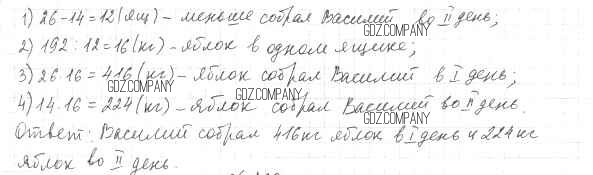 1) 26-14=12(ящ) - меньше собрал Василий во II день;
GDZ.COMPANY
2) 192:12=16(кг) - яблок в одном ящике;
GDZ.COMPANY
3) 26·16=416(кг) - яблок собрал Василий в I день;
GDZ.COMPANY
GDZ.COMPANY
4) 14·16=224(кг) - яблок собрал Василий во II день.
GDZ.COMPANY
Ответ: Василий собрал 416кг яблок в I день и 224кг
яблок во II день.